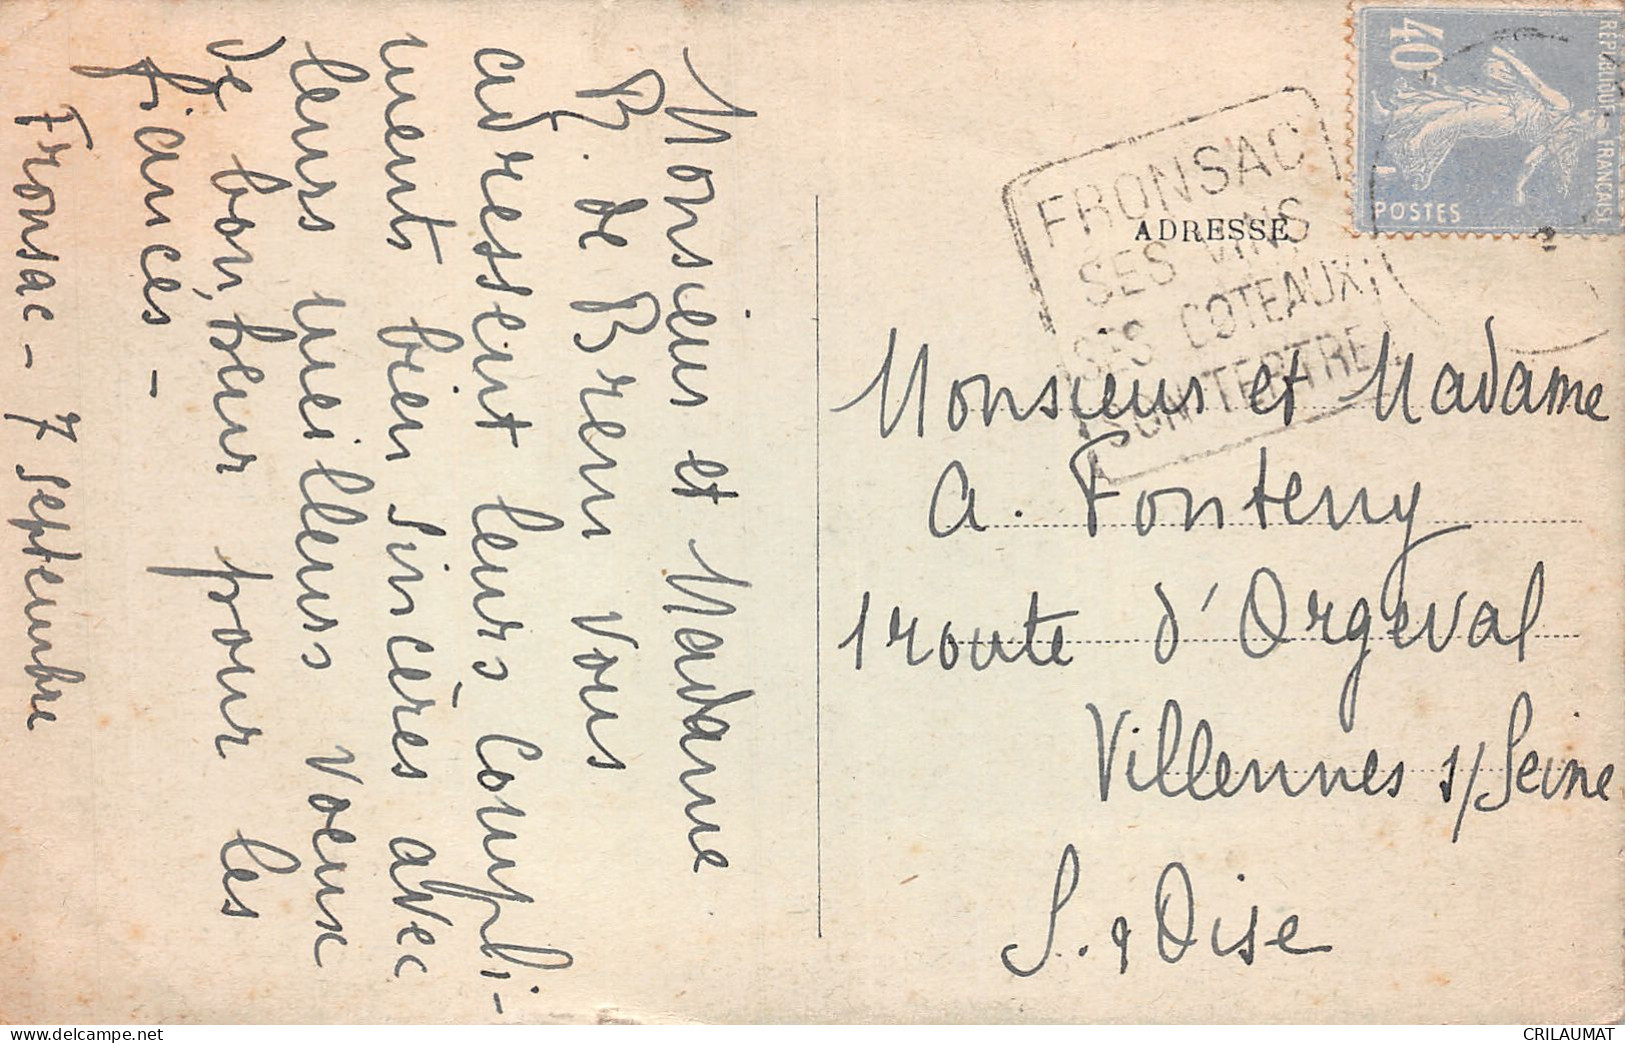 Monsieur et Madame
B. de Brem vous
adressent leurs compli-
ments bien sincères avec
leurs meilleurs voeux
de bonheur pour les
fiancés -
Fronsac - 7 septembre
RÉPUBLIQUE FRANÇAISE
40c
POSTES
FRONSAC
SES VINS
SES COTEAUX
SON TERTRE
ADRESSE
Monsieur et Madame
A. Fonteny
1 route d'Orgeval
Villennes s/Seine
S. & Oise
www.delcampe.net
CRILAUMAT